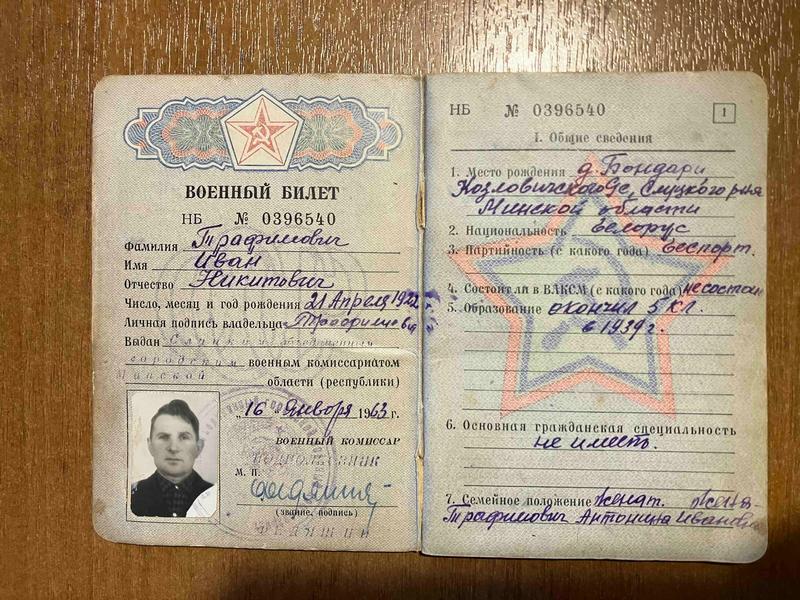 ВОЕННЫЙ БИЛЕТ
НБ № 0396540
Фамилия Трафимович
Имя Иван
Отчество Никитович
Число, месяц и год рождения 21 Апреля
Личная подпись владельца
Выдан Слуцким объединенным
городским военным комиссариатом
Минской области (республики)
„16 января 1963 г.
ВОЕННЫЙ КОМИССАР
ПОДПОЛКОВНИК
М. П.
(звание, подпись)
НБ № 0396540
1
I. Общие сведения
1. Место рождения д. Бондари
Козловичского с/с, Слуцкого р-на
Минской области
2. Национальность белорус
3. Партийность (с какого года) беспарт.
4. Состоял ли в ВЛКСМ (с какого года) не состоял
5. Образование окончил 5 кл.
в 1939 г.
6. Основная гражданская специальность
не иметь.
7. Семейное положение Женат. Жена-
Трафимович Антонина Ивановна